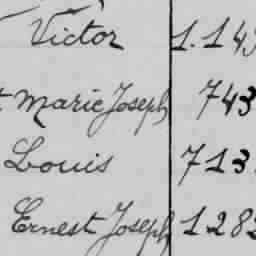 Victor 1.143
t Marie Joseph 743
Louis 713.
Ernest Joseph 1282